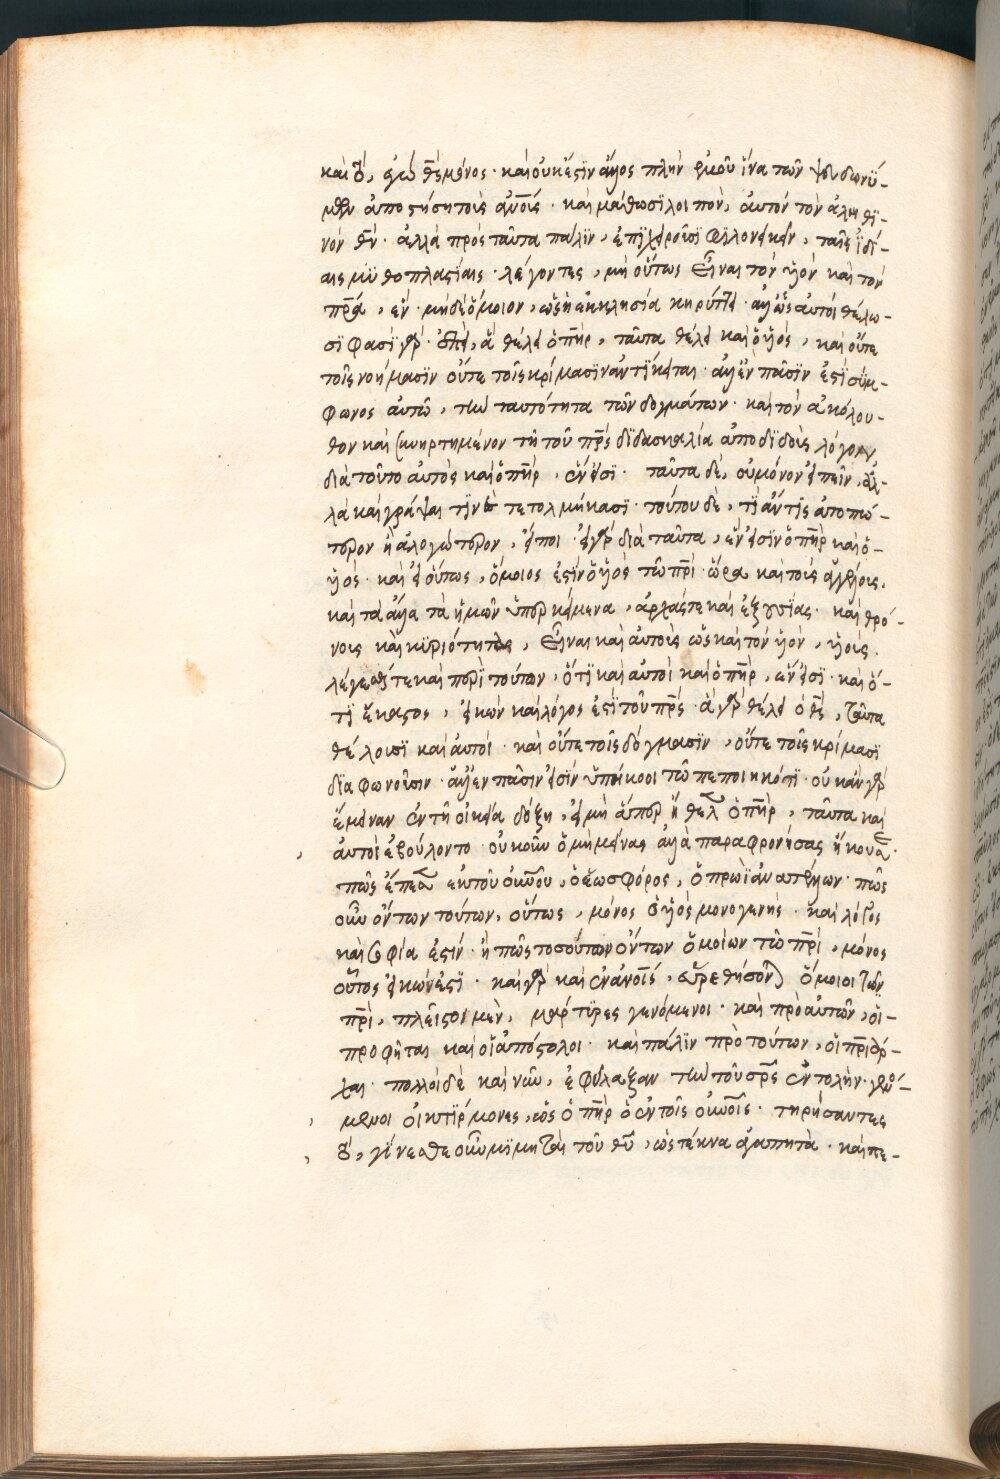 καὶ τὸ, ἐγὼ θς μόνος· καὶ οὐκ ἔστιν ἄλλος πλὴν ἐμοῦ ἵνα τῶν ψευδωνύ-
μων ἀποστήσῃ τοὺς ἀνους· καὶ μάθωσι λοιπὸν, αὐτὸν τὸν ἀληθι-
νὸν θν· ἀλλὰ πρὸς ταῦτα πάλιν, ἐπιχειροῦσι φιλονεικεῖν, ταῖς ἰδί-
αις μυθοπλαστίαις· λέγοντες, μὴ οὕτως εἶναι τὸν υἱὸν καὶ τὸν
πρα, ἓν· μηδὲ ὅμοιον, ὡς ἡ ἐκκλησία κηρύττει· ἀλλ' ὡς αὐτοὶ θέλου-
σι φασὶ γὰρ· ἐπεὶ, ἃ θέλει ὁ πηρ, ταῦτα θέλει καὶ ὁ υἱὸς, καὶ οὔτε
τοῖς νοήμασιν οὔτε τοῖς κρίμασιν ἀντίκειται· ἀλλ' ἐν πᾶσιν ἐστὶ σύμ-
φωνος αὐτῶ, τὴν ταυτότητα τῶν δογμάτων· καὶ τὸν ἀκόλου-
θον καὶ συνηρτημένον τῆ τοῦ πρς διδασκαλία ἀποδιδοὺς λόγον,
διὰ τοῦτο αὐτὸς καὶ ὁ πηρ, ἕν εἰσι· ταῦτα δὲ, οὐ μόνον εἰπεῖν, ἀλ-
λὰ καὶ γράψαι τινὲς τετολμήκασι· τούτου δὲ, τί ἄν τις ἀτοπώ-
τερον ἢ ἀλογώτερον, εἴποι· εἰ γὰρ διὰ ταῦτα, ἕν εἰσιν ὁ πηρ καὶ ὁ
υἱός· καὶ εἰ οὕτως, ὅμοιος ἐστὶν ὁ υἱὸς τῶ πρι· ὥρα καὶ τοὺς ἀγγέλους,
καὶ τὰ ἄλλα τὰ ἡμῶν ὑπερκείμενα, ἀρχάς τε καὶ ἐξουσίας· καὶ θρό-
νους καὶ κυριότητας, εἶναι καὶ αὐτοὺς ὡς καὶ τὸν υἱὸν, υἱούς.
λέγεσθαί τε καὶ περὶ τούτων, ὅτι καὶ αὐτοὶ καὶ ὁ πηρ, ἕν εἰσι· καὶ ὅ-
τι ἕκαστος, εἰκὼν καὶ λόγος ἐστὶ τοῦ πρς· ἃ γὰρ θέλει ὁ θς, ταῦτα
θέλουσι καὶ αὐτοί· καὶ οὔτε τοῖς δόγμασιν, οὔτε τοῖς κρίμασι
διαφωνοῦσιν· ἀλλ' ἐν πᾶσιν εἰσὶν ὑπήκοοι τῶ πεποιηκότι· οὐκ ἂν γὰρ
ἔμειναν ἐν τῆ οἰκεία δόξη, εἰ μὴ ἅπερ ἤθελεν ὁ πηρ, ταῦτα καὶ
αὐτοὶ ἐβούλοντο· οὐκοῦν ὁ μὴ μείνας ἀλλὰ παραφρονήσας ἤκουσεν·
πῶς ἔπεσεν ἐκ τοῦ οὐνοῦ, ὁ ἑωσφόρος, ὁ πρωὶ ἀνατέλλων· πῶς
οὖν ὄντων τούτων, οὕτως, μόνος ὁ υἱὸς μονογενὴς· καὶ λόγος
καὶ σοφία ἐστίν· ἢ πῶς τοσούτων ὄντων ὁμοίων τῶ πρι, μόνος
οὗτος εἰκών ἐστι· καὶ γὰρ καὶ ἐν ἀνοις, εὑρεθήσονται ὅμοιοι τῶ
πρι, πλεῖστοι μὲν, μάρτυρες γενόμενοι· καὶ πρὸ αὐτῶν, οἱ
προφῆται καὶ οἱ ἀπόστολοι· καὶ πάλιν πρὸ τούτων, οἱ πριάρ-
χαι· πολλοὶ δὲ καὶ νῦν, ἐφύλαξαν τὴν τοῦ σρς ἐντολὴν· γενό-
μενοι οἰκτίρμονες, ὡς ὁ πηρ ὁ ἐν τοῖς οὐνοῖς· τηρήσαντες
τὸ, γίνεσθε οὖν μιμηταὶ τοῦ θυ, ὡς τέκνα ἀγαπητὰ· καὶ πε-